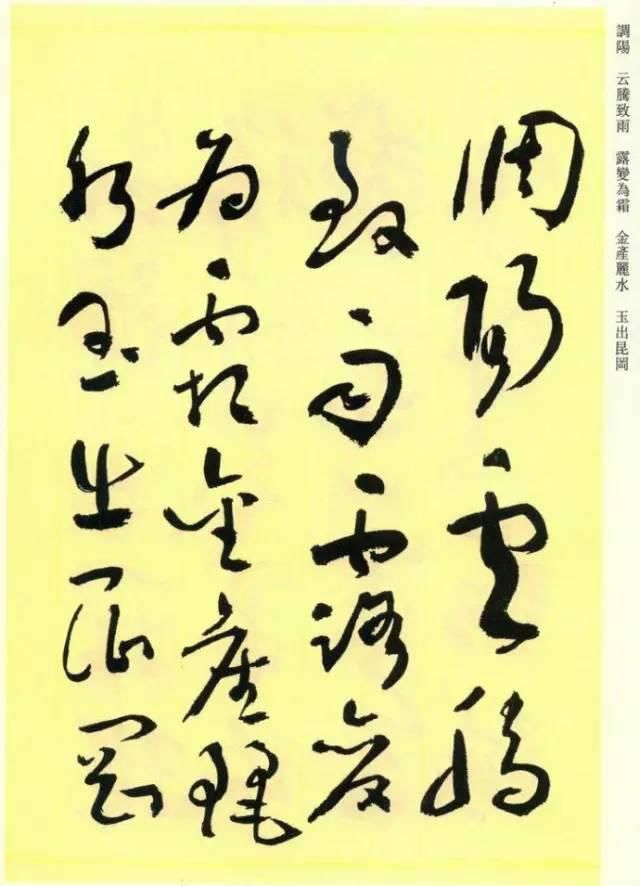 調陽 云騰致雨 露變為霜 金產麗水 玉出昆岡
調陽雲騰
致雨露變
為霜金產麗
水玉出崑岡